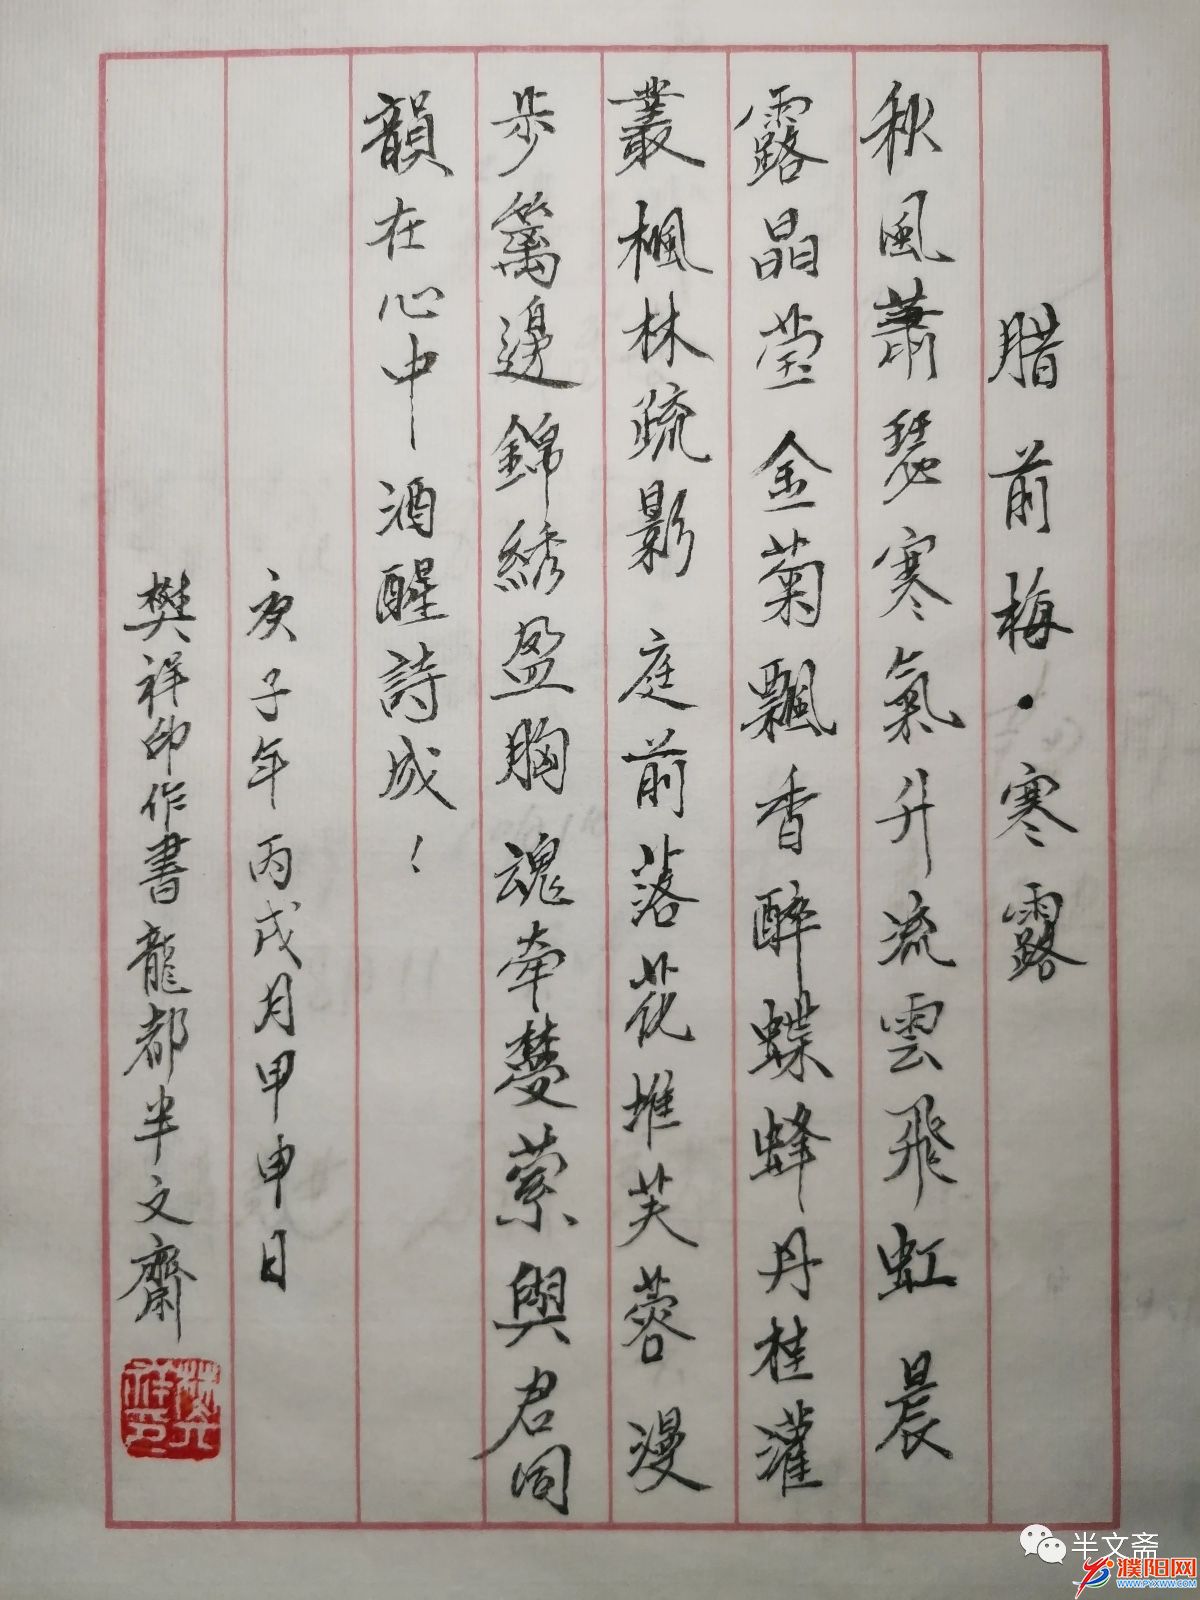 腊前梅·寒露
秋風蕭瑟寒氣升流雲飛虹晨
露晶莹金菊飄香醉蝶蜂丹桂灌
叢楓林疏影庭前落花堆芙蓉漫
步籬邊錦綉盈胸魂牽夢萦與君同
韻在心中酒醒詩成！
庚子年丙戌月甲申日
樊祥印作書龍都半文齋
半文斋
濮阳网
WWW.PYXWW.COM